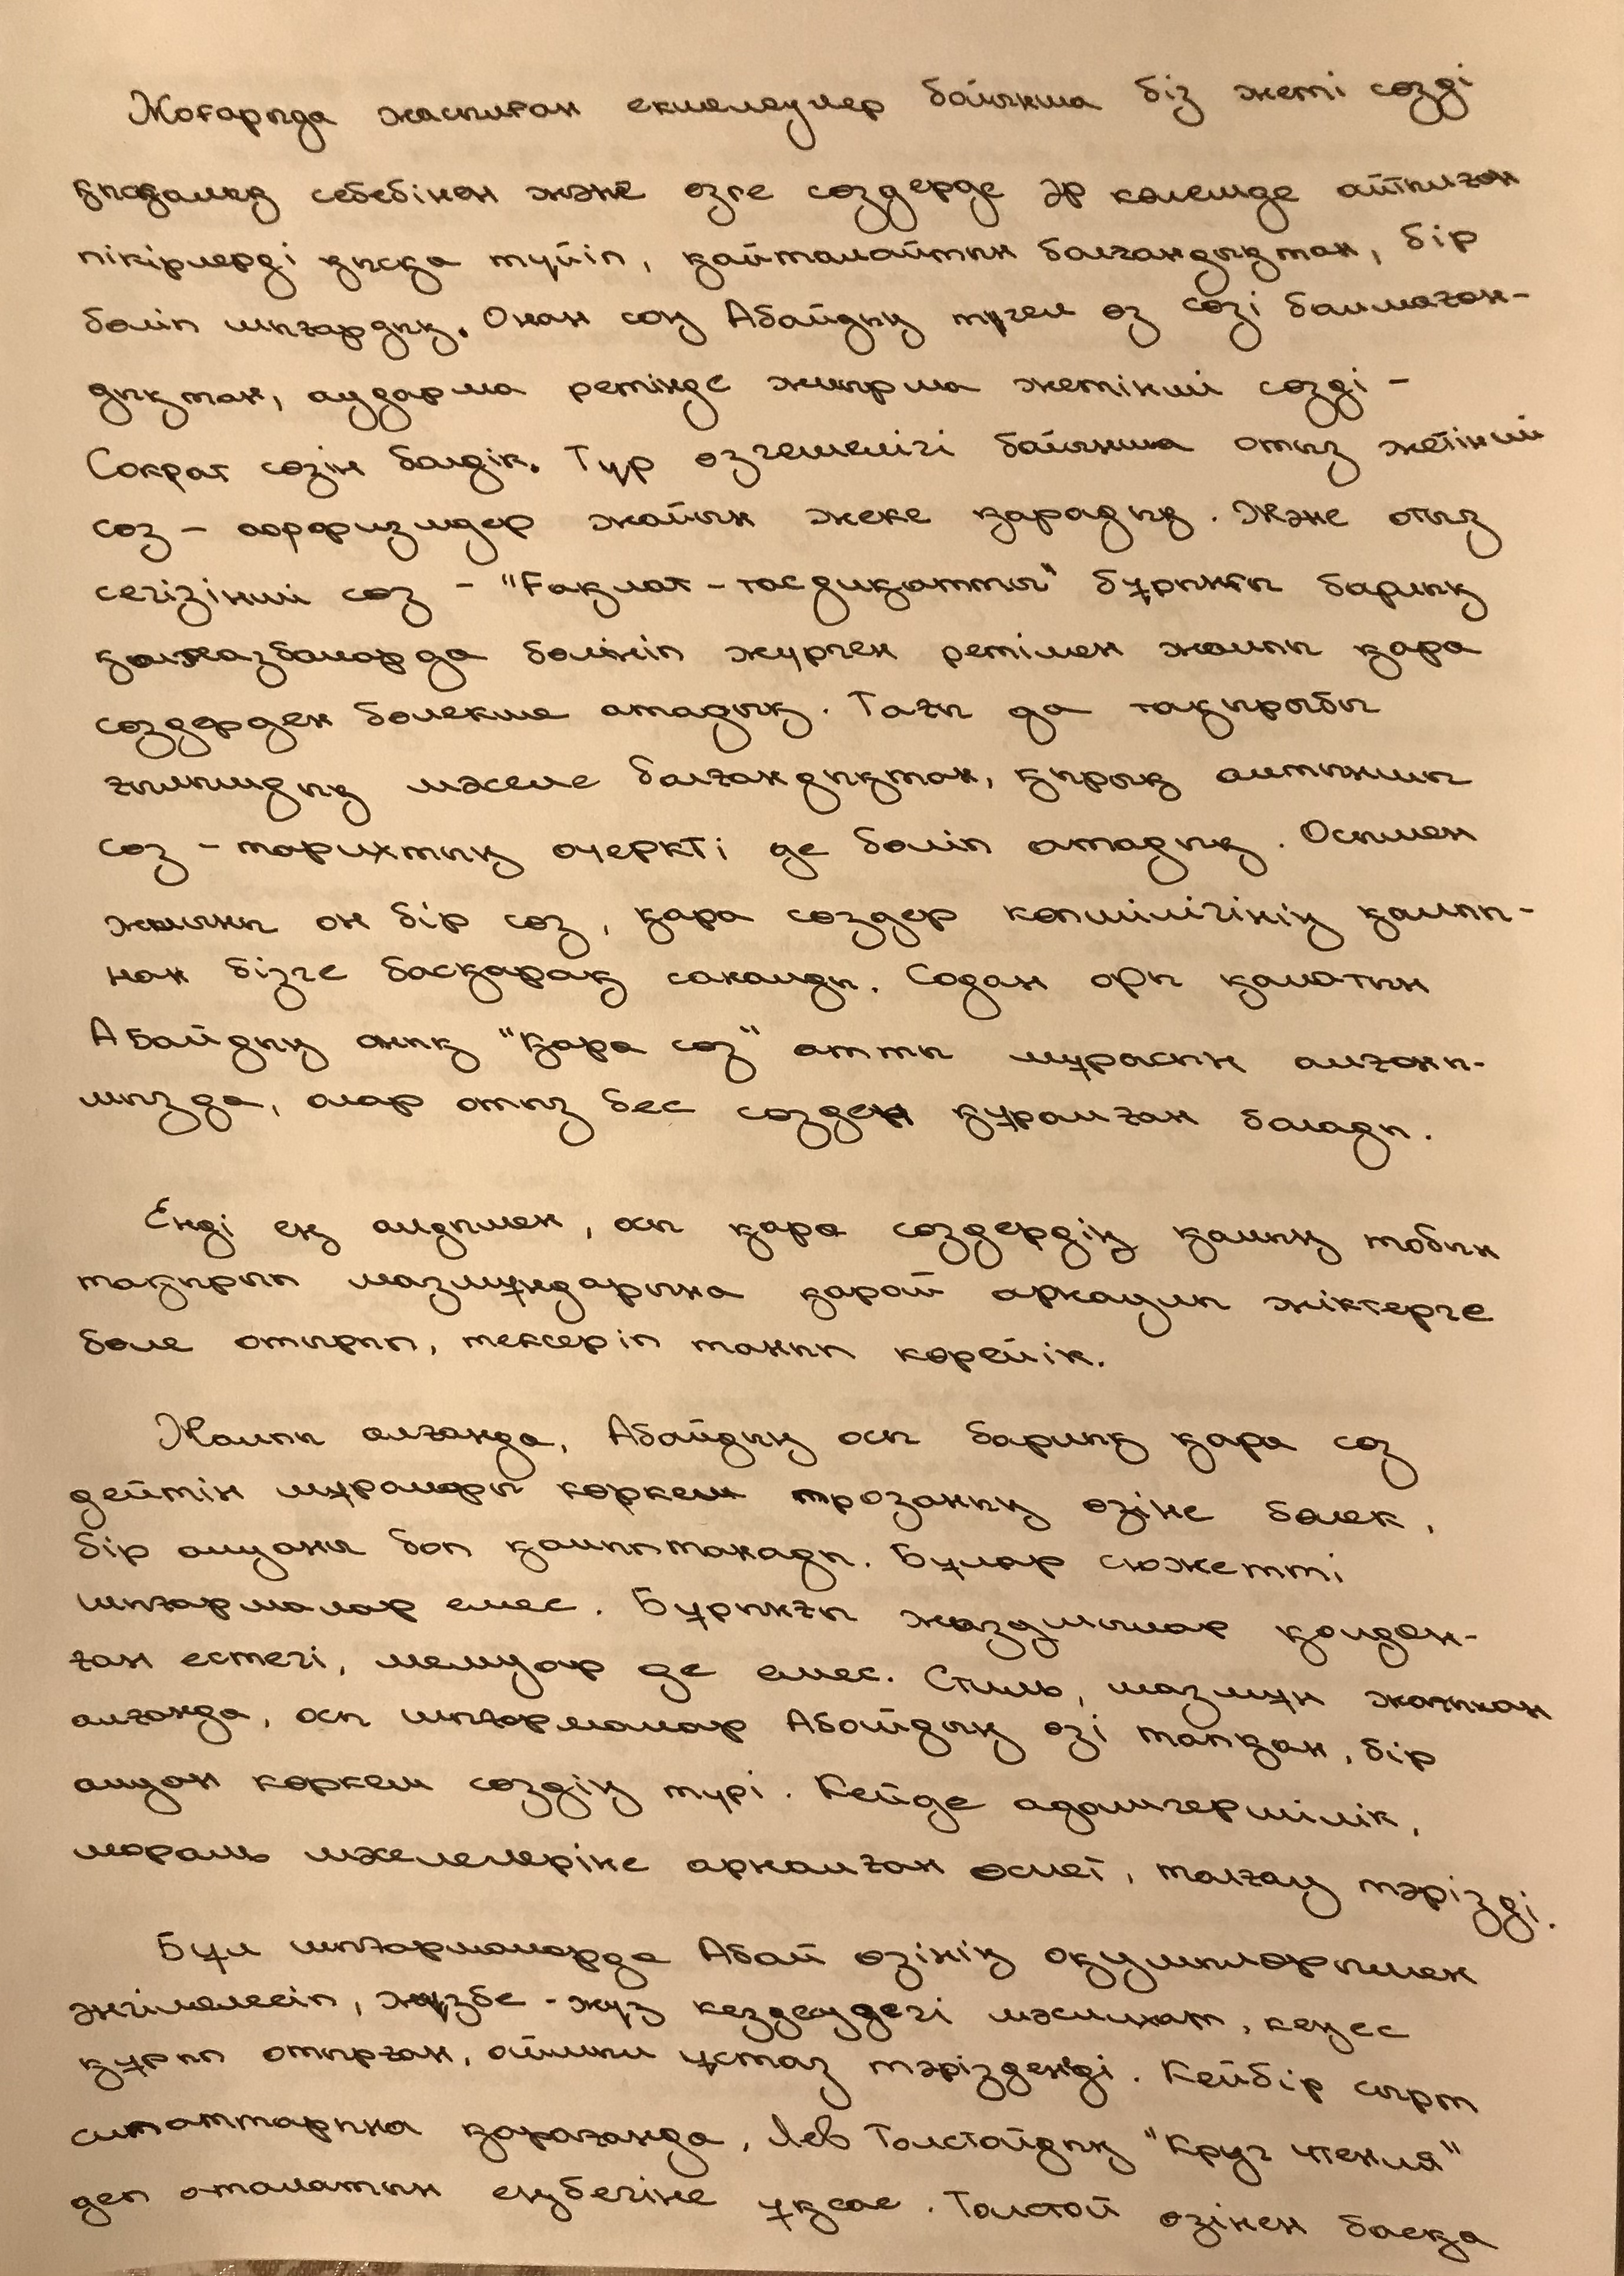 Жоғарыда жасылған екшелеулер бойынша біз жеті сөзді
қысқалық себебінен және өзге сөздерде әр көлемде айтылған
пікірлерді қысқа түйіп, қайталайтын болғандықтан, бір
бөліп шығардық. Онан соң Абайдың түгел өз сөзі болмаған-
дықтан, аударма ретінде жиырма жетінші сөзді -
Сократ сөзін бөлдік. Түр өзгешелігі бойынша отыз жетінші
сөз - афоризмдер жайын жеке қарадық. Және отыз
сегізінші сөз - "Ғақлат-тасдиқатты" бұрынғы барлық
қолжазбаларда бөлініп жүрген ретімен жалпы қара
сөздерден бөлекше атадық. Тағы да тақырыбы
ғылымдық мәселе болғандықтан, қырық алтыншы
сөз - тарихтық очеркті де бөліп атадық. Осымен
жалпы он бір сөз, қара сөздер көпшілігінің қалпы-
нан бізге басқарақ саналды. Содан әрі қалатын
Абайдың анық "қара сөз" атты мұрасын алғаны-
мызда, олар отыз бес сөзден құралған болады.
Енді ең алдымен, осы қара сөздердің қалың тобын
тақырып мазмұндарына қарай арнаулы жіктерге
бөле отырып, тексеріп танып көрейік.
Жалпы алғанда, Абайдың осы барлық қара сөз
дейтін мұралары көркем прозаның өзіне бөлек,
бір алуаны боп қалыптанады. Бұлар сюжетті
шығармалар емес. Бұрынғы жазушылар қолдан-
ған естегі, мемуар де емес. Стиль, мазмұн жағынан
алғанда, осы шығармалар Абайдың өзі тапқан, бір
алуан көркем сөздің түрі. Кейде адамгершілік,
мораль мәселелеріне арналған өсиет, толғау тәрізді.
Бұл шығармаларда Абай өзінің оқушыларымен
әңгімелесіп, жүзбе-жүз кездеудегі мәслихат, кеңес
құрып отырған, ойшыл ұстаз тәрізденді. Кейбір сырт
сипаттарына қарағанда, Лев Толстойдың "Круг чтения"
деп аталатын еңбегіне ұқсас. Толстой өзінен басқа